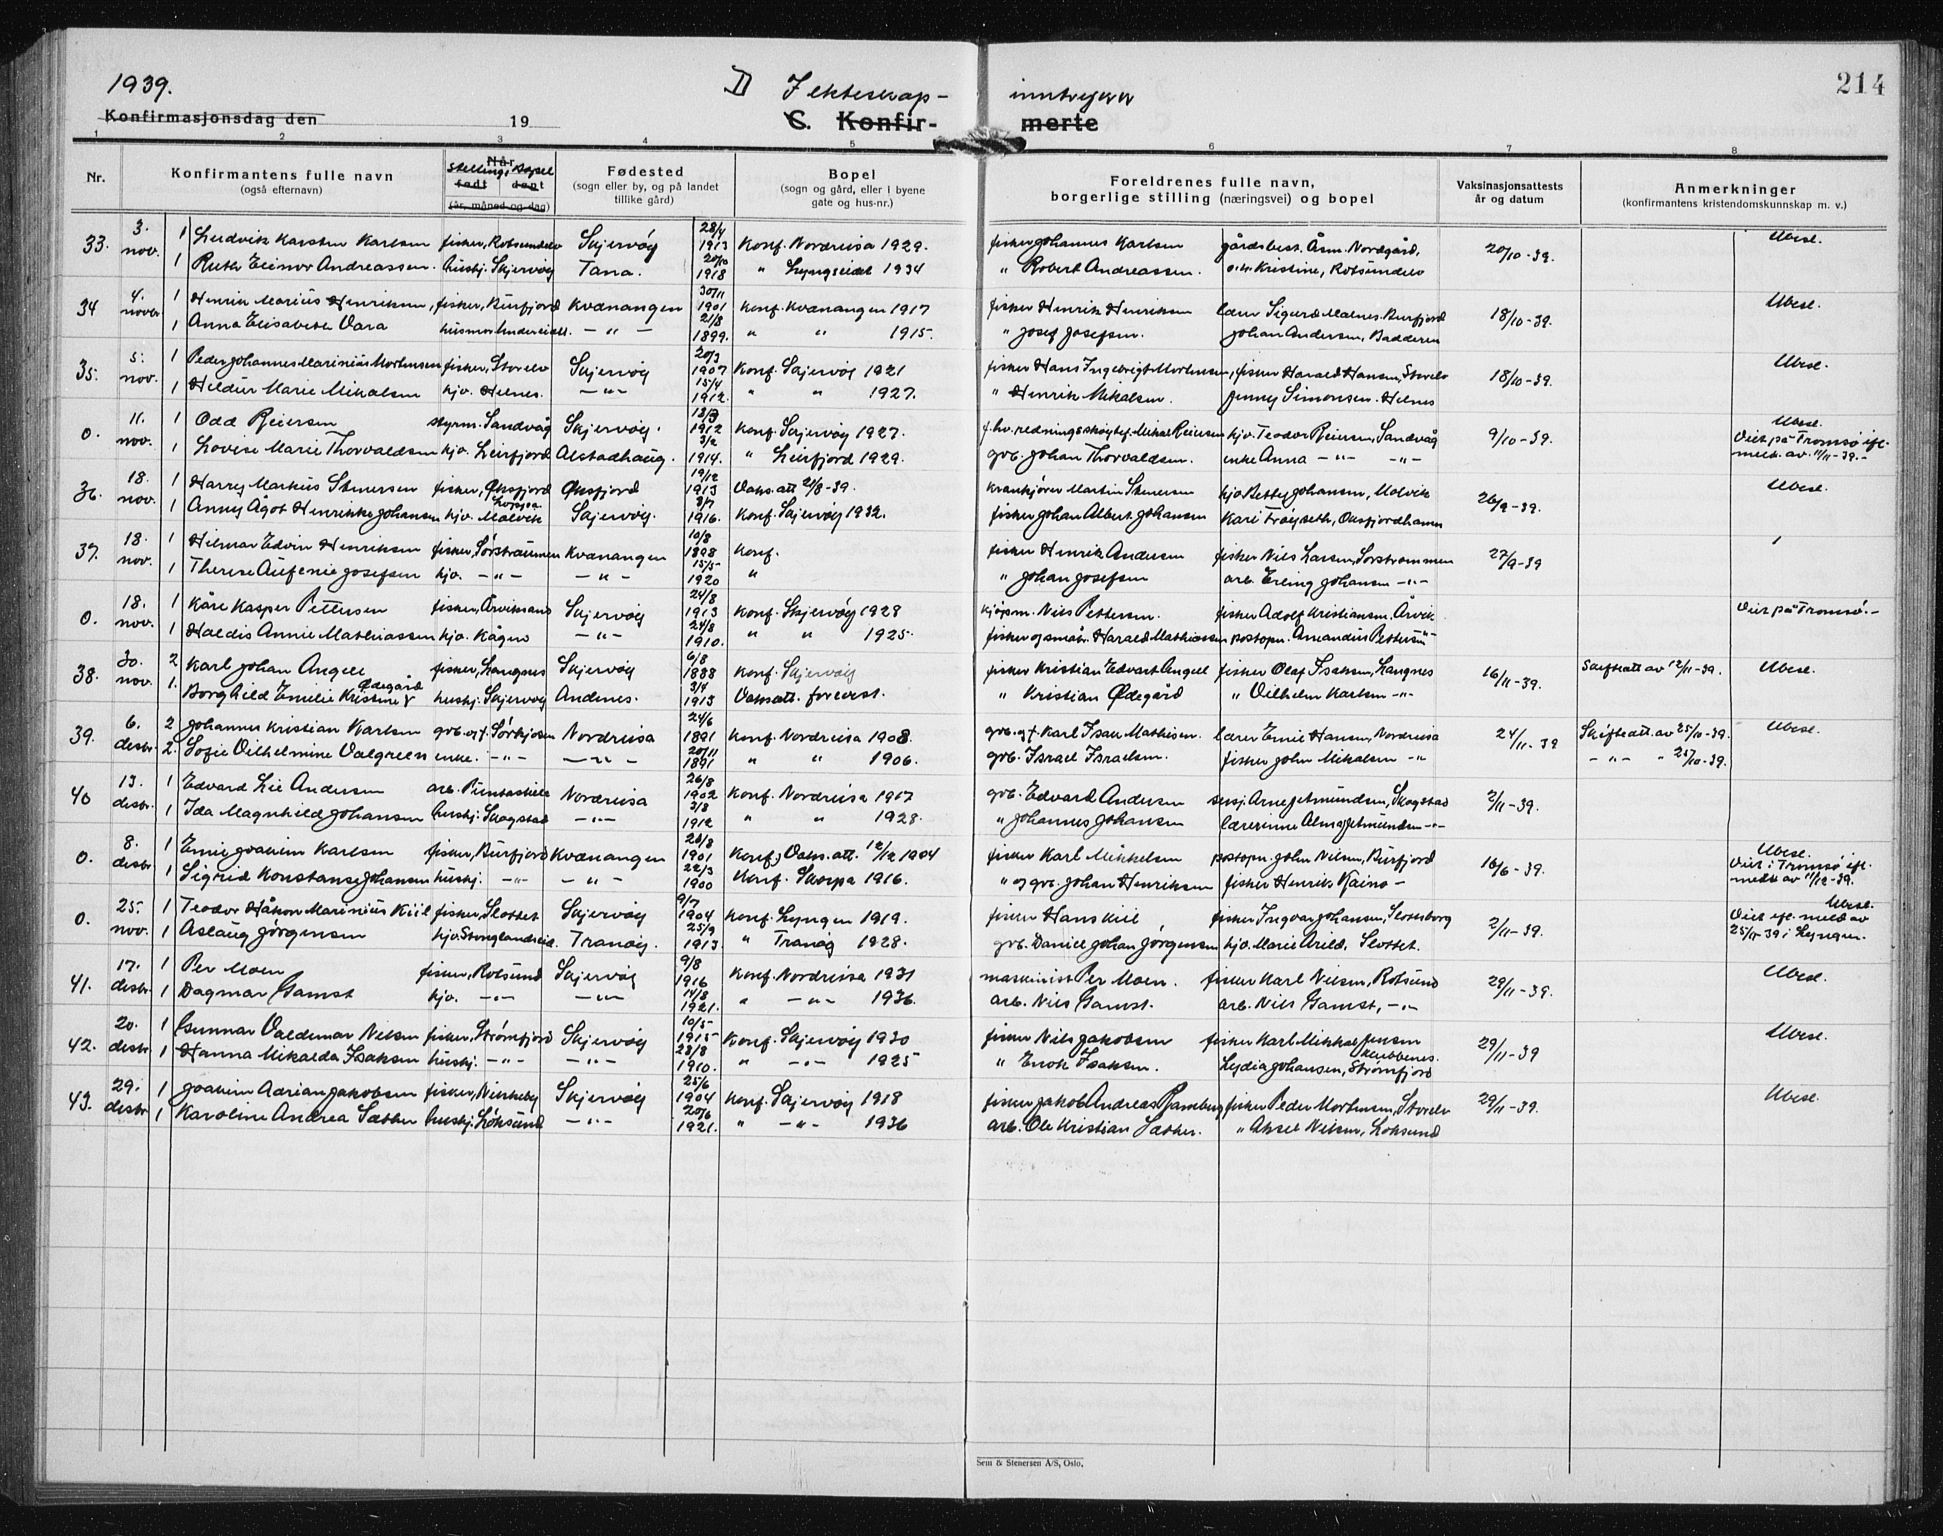 1939. D I ekteskap- inntrer 214
Konfirmasjonsdag den 19 C. Konfir- merte
1 2 3 4 5 6 7 8
Nr. Konfirmantens fulle navn Når Fødested Bopel Foreldrenes fulle navn, Vaksinasjonsattests Anmerkninger
(også efternavn) Stilling, Bopel født døpt (sogn eller by, og på landet (sogn og gård, eller i byene borgerlige stilling (næringsvei) og bopel år og datum (konfirmantens kristendomskunnskap m. v.)
(år, måned og dag) tillike gård) gate og hus-nr.)
33. 3. nov. 1 Ludvik Karsten Karlsen fisker, Rotsundelv Skjervøy 28/4 1913 Konf. Nordreisa 1929. fisker Johannes Karlsen gårdsbest. Åsm. Nordgård, 20/10-39. Ubesl.
1 Ruth Elinor Andreassen. hushj. Skjervøy Tana. 20/10 1918 " Lyngseidet 1934 " Robert Andreassen. Kristine, Rotsundelv
34 4. novbr 1 Henrik Marius Henriksen, fisker, Burfjord Kvænangen 30/11 1901 Konf. Kvænangen 1917 fisker Henrik Henriksen Sigurd Malnes, Burfjord 18/10-39. Ubesl.
1 Anna Elisabeth Vara - " - 21/8 1899. " " 1915. " Josef Josefsen. Johan Andersen, Badderen
35. 5. nov. 1 Peder Johannes Marinius Mortensen fisker, Storelv Skjervøy 20/3 1907 Konf. Skjervøy 1921 fisker Hans Ingebrigt Mortensen, fisker Harald Hansen, Storelv 18/10-39. Ubesl.
1 Hildur Marie Mikalsen hjv. Hilnes. - " - 15/4 1912. " " 1927. " Henrik Mikalsen. Jenny Simonsen. Hilnes
0. 11. nov. 1 Odd Reiersen styrm. Sandvåg Skjervøy. 1912 Konf. Skjervøy 1927. f. hv. redningsskøytef. Mikal Reiersen hjv. Teodor Reiersen, Sandvåg 9/10-39. Ubesl.
1 Lovise Marie Thorvaldsen hjv. Leirfjord Alstadhaug. 3/2 1914. " Leirfjord 1929. grb. Johan Thorvaldsen. enke Anna - " - - " - Viet på Tromsø ifl. meld. av 11/11-39.-
36. 18. nov. 1 Harry Markus Stenersen fisker, Øksfjord Øksfjord 19/12 1913 Vaks. att 21/8-39. Martin Stenersen hjv. Betty Johansen, Molvik 26/9-39. Ubesl.
1 Anny Ågot Henrikke Johansen hjv. Loppa Malvik Skjervøy. 3/7 1916. Konf. Skjervøy 1932. fisker Johan Albert Johansen Kari Trøyseth, Oksfjordhamn
37. 18. nov. 1 Hilmar Edvin Henriksen fisker, Sørstraumen Kvænangen 10/8 1898 Konf. fisker Henrik Andersen fisker Nils Larsen, Sørstrømmen 27/9-39
1 Therese Aufenie Josefsen hjv. - " - - " - 15/5 1920 " " Johan Josefsen arb. Erling Johansen - " -
0. 18. nov. 1 Kåre Kasper Pettersen fisker, Årviksand Skjervøy 24/8 1913 Konf. Skjervøy 1928 kjøpm. Nils Pettersen. fisker Adolf Kristiansen, Årvik. Viet på Tromsø.-
1 Haldis Annie Mathiassen hjv. Kågen - " - 24/8 1910. " " 1925. fisker og småbr. Harald Mathiassen postopn. Amandus Pettersen "
38. 30. nov. 2 Karl Johan Angell fisker, Langnes Skjervøy 6/8 1888 Konf. Skjervøy fisker Kristian Edvart Angell fisker Olaf Isaksen, Langnes 16/11-39. Skifteatt av 12/11-39. Ubesl.
1. Borghild Emelie Kristine Ødegård hushj. Skjervøy Andenes. 3/4 1913 Vaks. att. forevist. " Kristian Ødegård " Vilhelm Karlsen - " -
39. 6. desbr. 2 Johannes Kristian Karlsen grb. og f. Sørkjosen Nordreisa 24/6 1891 Konf. Nordreisa 1908. grb. og f. Karl Isak Mathisen. lærer Emil Hansen, Nordreisa 24/11-39 Skifteatt. av 25/10-39. Ubesl.
2. Sofie Vilhelmine Valgreen enke. - " - - " - 20/11 1891 " " 1906. grb. Israel Israelsen. fisker John Mikalsen - " - " - " 25/10-39.
40 13. desbr. 1 Edvard Lie Andersen arb. Puntastilla Nordreisa 26/8 1902 Konf. Nordreisa 1917 grb. Edvard Andersen Arne Jetmundsen, Skogstad 2/11-39.
1 Ida Magnhild Johansen hushj. Skogstad - " - 2/8 1912 " " 1928. " Johannes Johansen lærerinne Alma Jetmundsen - " -
0. 8. desbr 1 Emil Joakim Karlsen fisker, Burfjord Kvænangen 20/8 1901 Konf., Vaks. att. 12/12 1904 fisker Karl Mikkelsen postopn. John Nilsen, Burfjord 16/6-39. Ubesl.
1 Sigrid Konstanse Johansen hushj. - " - - " - 22/3 1900 Konf. Skorpa 1916. " og grb. Johan Henriksen fisker Henrik Kaino - Viet i Tromsø ifl. meld av 11/12-39.
0. 25. nov. 1 Teodor Håkon Marinius Kiil fisker, Slottet Skjervøy 9/7 1904 Konf. Lyngen 1919. fisker Hans Kiil fisker Ingvar Johansen, Slottenborg 2/11-39. Ubesl.
1 Aslaug Jørgensen hjv. Stonglandseid. Tranøy. 25/9 1913 " Tranøy 1928. grb. Daniel Johan Jørgensen hjv. Marie Arild, Slottet. Viet ifl. meld av 25/11 39 i Lyngen.
41. 17. desbr. 1 Per Moen fisker, Rotsund Skjervøy 9/8 1916 Konf. Nordreisa 1931 maskinist Per Moen. fisker Karl Nilsen, Rotsund 29/11-39. Ubesl.
1 Dagmar Gamst hjv. - " - - " - 14/8 1921. " - " - 1936. arb. Nils Gamst. arb. Nils Gamst, - " -
42. 20. desbr 1 Gunnar Valdemar Nilsen fisker, Strømfjord Skjervøy 10/5- 1915 Konf. Skjervøy 1930 fisker Nils Jakobsen fisker Karl Mikkal Jensen Klubbenes. 29/11-39 Ubesl.
1 Hanna Mikalda Isaksen hushj. - " - - " - 28/8 1910. " - " - 1925 " Enok Isaksen. Lydia Johansen, Strømfjord
43. 29. desbr 1 Joakim Adrian Jakobsen fisker, Nikkeby Skjervøy 25/6 1904 Konf. Skjervøy 1918 fisker Jakob Andreas Ramberg fisker Peder Mortensen, Storelv 29/11-39. Ubesl.
1 Karoline Andrea Sæther hushj. Løksund - " - 20/6 1921. " - " - 1936 arb. Ole Kristian Sæther. " Aksel Nilsen, Loksund
Sem & Stenersen A/S, Oslo.